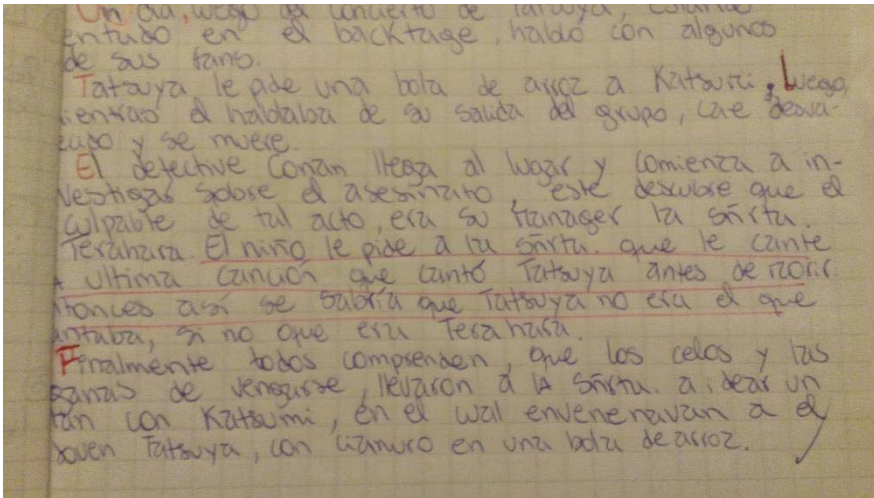 Un día, luego del concierto de Tatsuya, estando
entubo en el backtage, habló con algunos
de sus fans.
Tatsuya le pide una bola de arroz a Katsumi. Luego,
mientras el hablaba de su salida del grupo, cae desva-
ezado y se muere.
El detective Conan llega al lugar y comienza a in-
vestigar sobre el asesinato, este descubre que el
culpable de tal acto, era su manager la sñrta.
Terahara. El niño le pide a la sñrta. que le cante
la ultima canción que cantó Tatsuya antes de morir
entonces así se sabría que Tatsuya no era el que
cantaba, si no que era Terahara.
Finalmente todos comprenden, que los celos y las
ganas de vengarse, llevaron a la sñrta. a idear un
plan con Katsumi, en el cual envenenavan a el
joven Tatsuya, con cianuro en una bola de arroz.